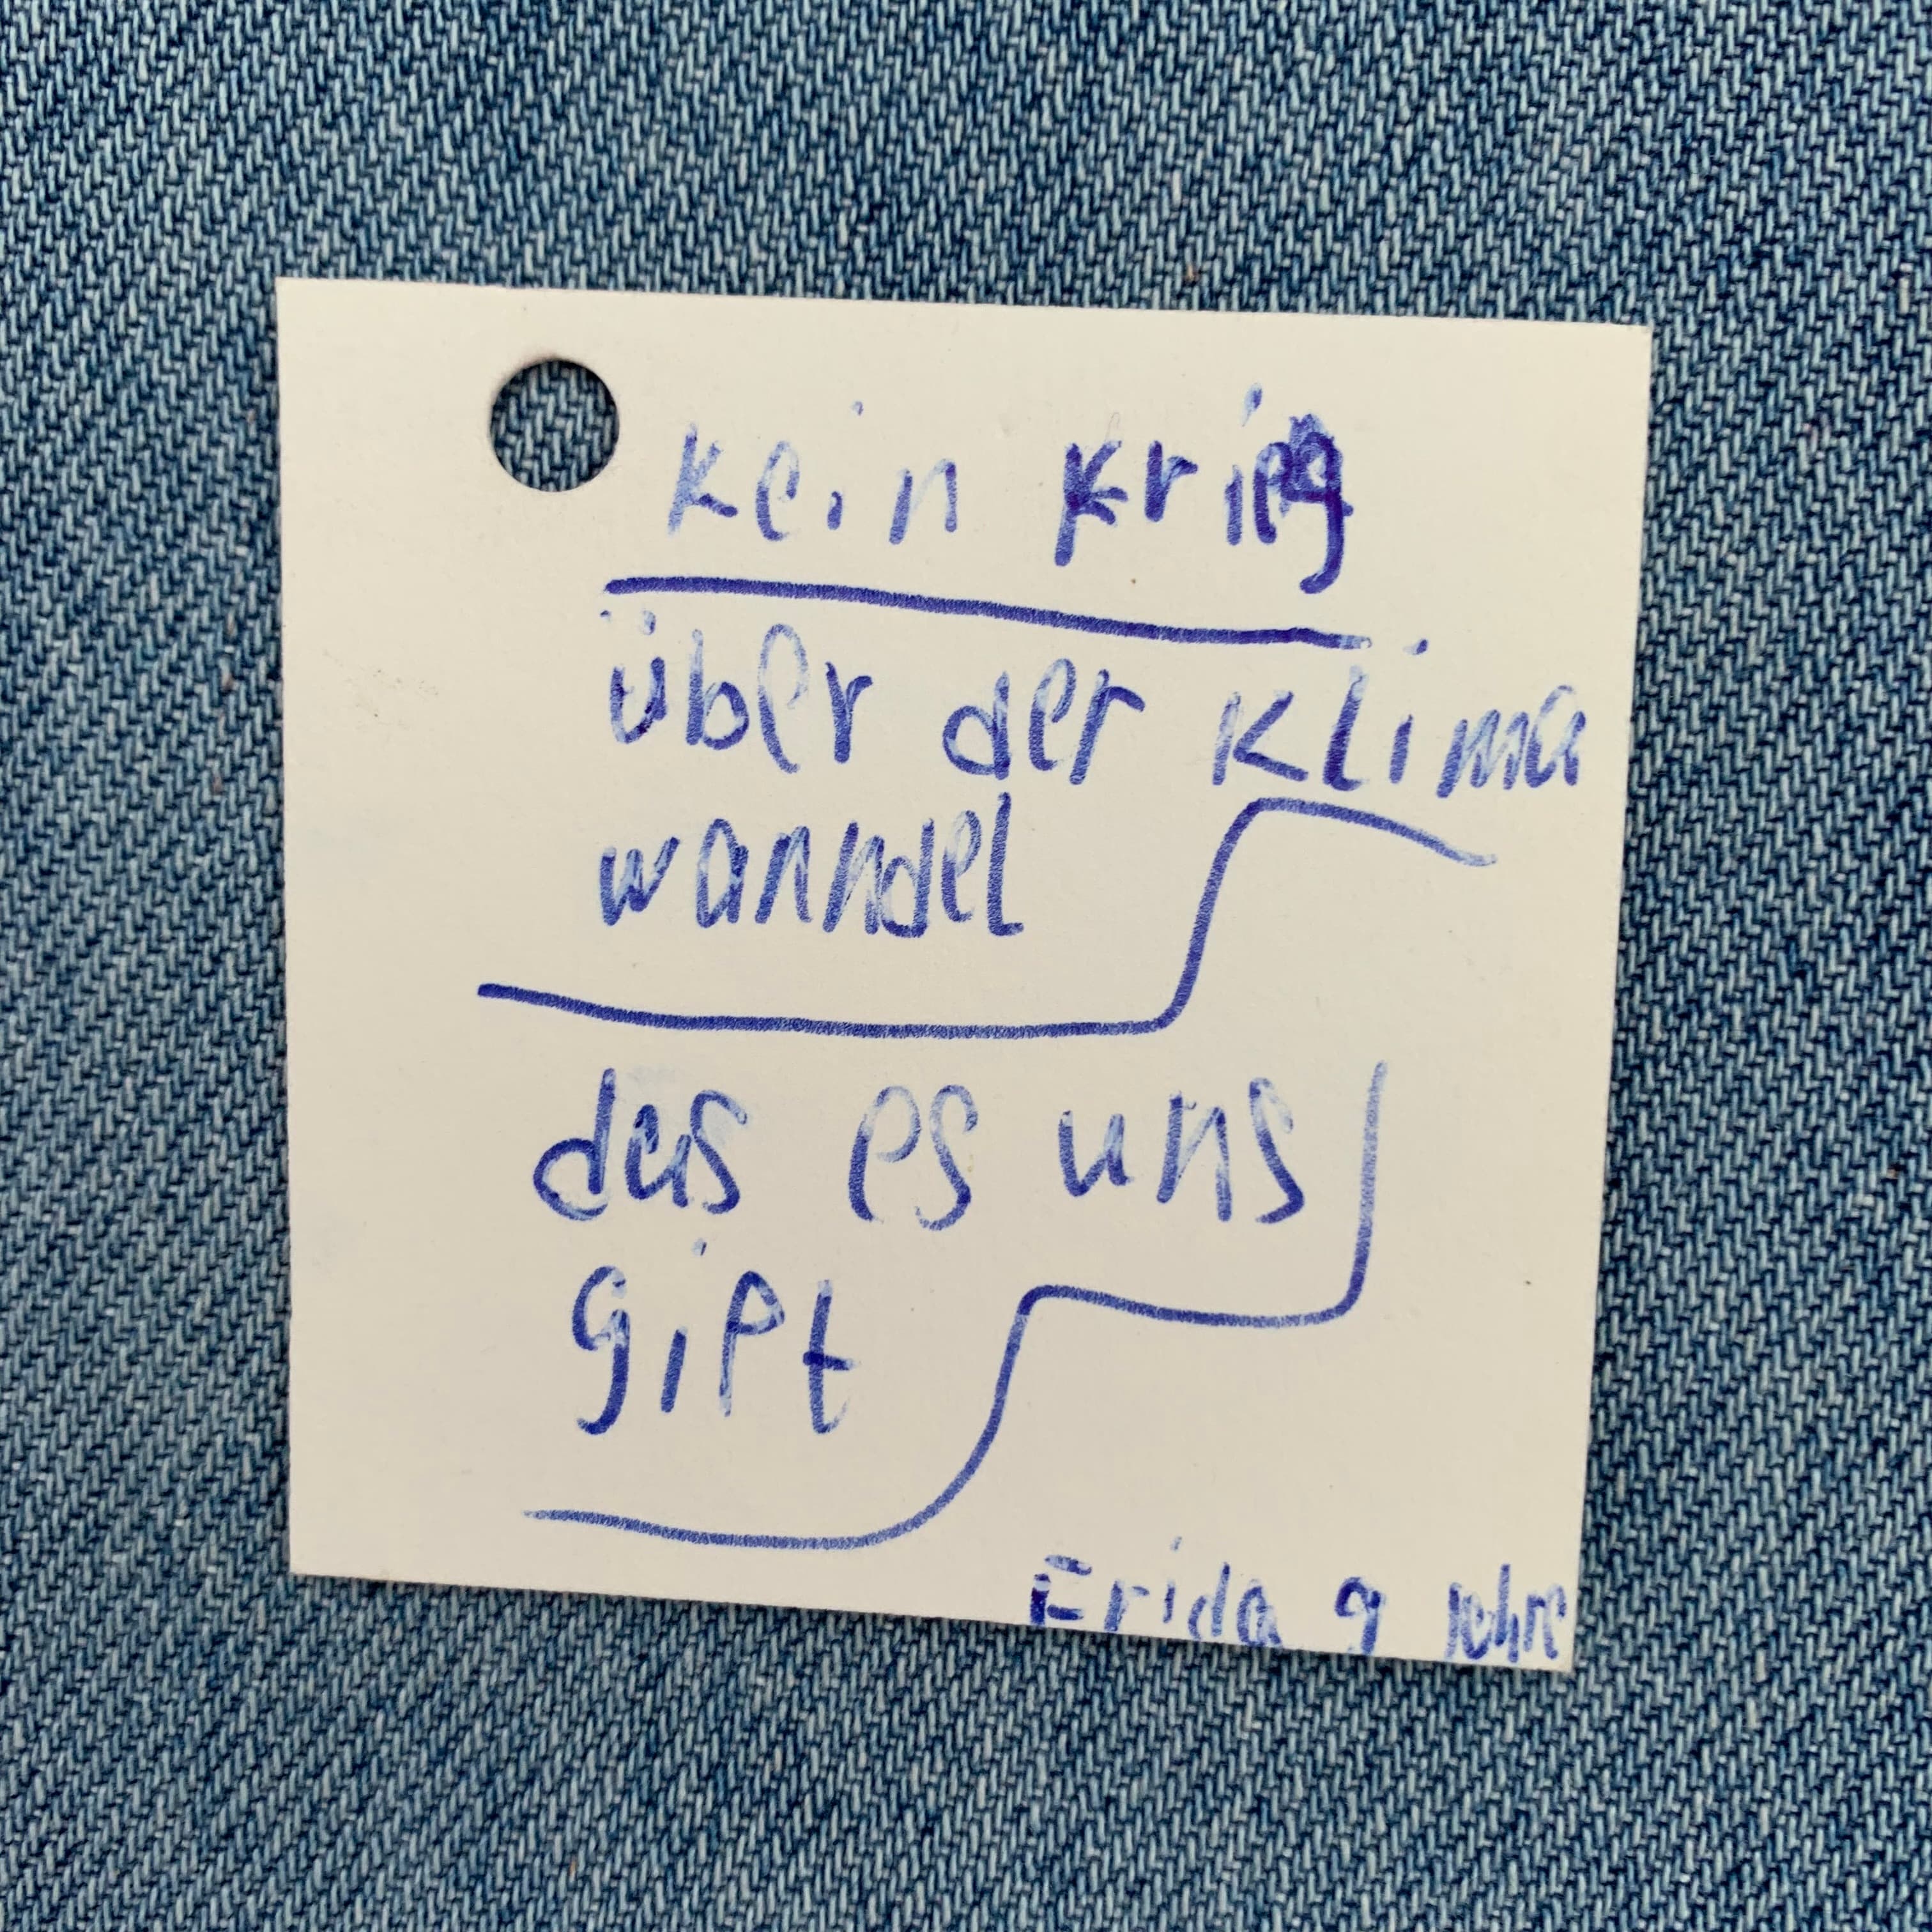 kein krieg
über der klima
wanndel
das es uns
gipt
Frida 9 Jahre